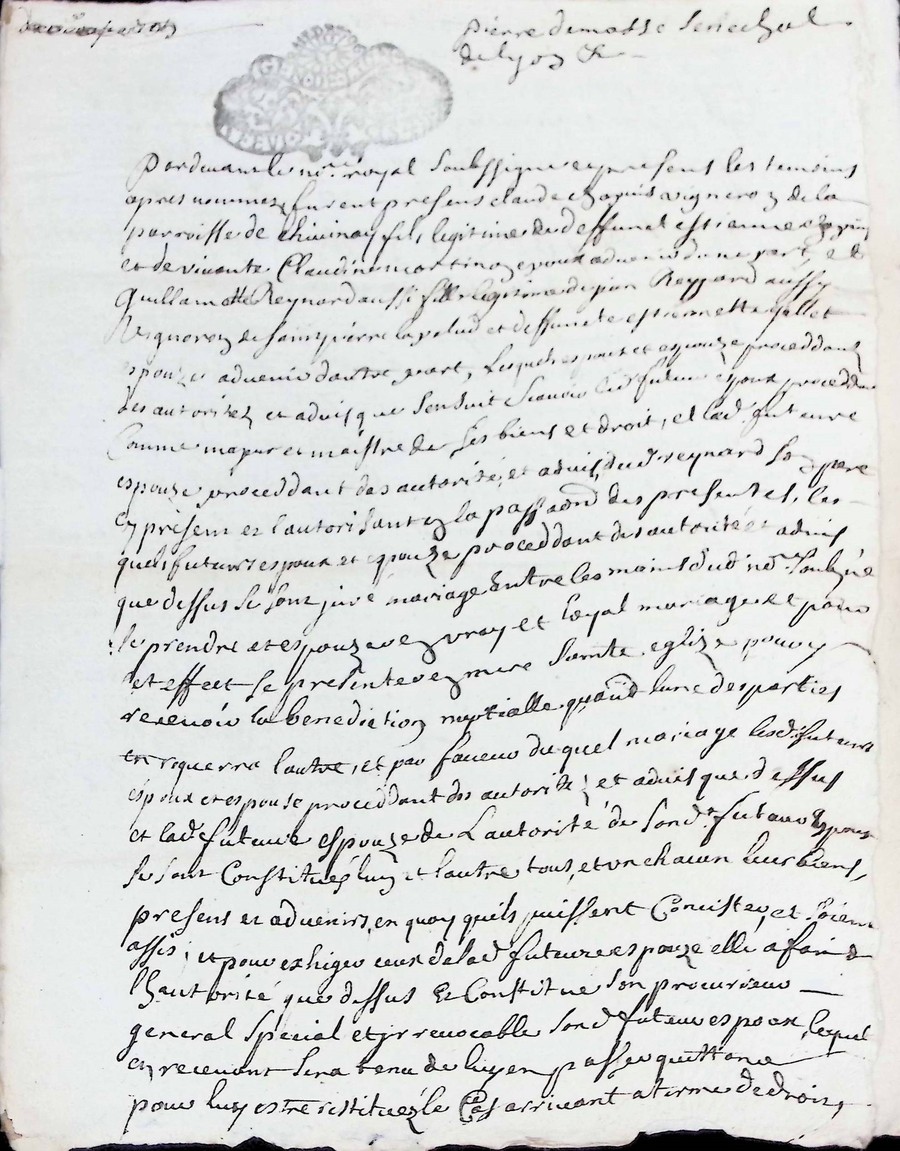 pierre de masse senechal
de lyon &c
GEN. DE
Pardevant le nore. royal soubssigné et presens les temoins
apres nommez furent presens claude chapuis vigneron de la
parroisse de chivinay fils legitime de deffunct estienne chapuis
et de vivante Claudine martin epoux advenir d'une part, et
Guillamette Reynard aussi fille legitime de jean Reynard aussy
Vigneron de saint pierre la palud et deffuncte estiennette gallet
espouze advenir d'autre part, Lesquels espoux et espouze proceddans
des autoritez et advis que s'ensuit Scavoir led. futur epoux proceddant
Comme majeur et maistre de ses biens et droit, et lad. future
espouze proceddant des autorité, et advis, dud. reynard son pere
cy présent et l'autorisant en la passaon des presentes, les-
quels futurs espoux et epouze proceddant des autorité et advis
que dessus se sont juré mariage entre les mains dud. nore. soubsigné
se prendre et espouzer en vray et loyal mariage et pour
cet effect se presenter en mere sainte eglize pour y
recevoir la benediction nuptialle quand l'une des parties
en requerra l'autre, et par faveur duquel mariage lesd. futurs
espoux et espouse proceddant des autorité et advis que dessus
et lad. future espouze de L'autorité de sond. futur Espoux
se sont Constitués l'un et l'autre tous, et un chacun leur biens,
presens et advenirs, en quoy quils puissent Concister, et soient
assis, et pour exhiger ceux de lad. future espouze elle a fait de
l'hautorité que dessus Et Constitue son procurieur
general special et irrevocable sond. futur espoux, lequel
en recevant sera tenu de luy en passer quittance
pour luy estre restituéz le Cas arrivant a terme de droit,